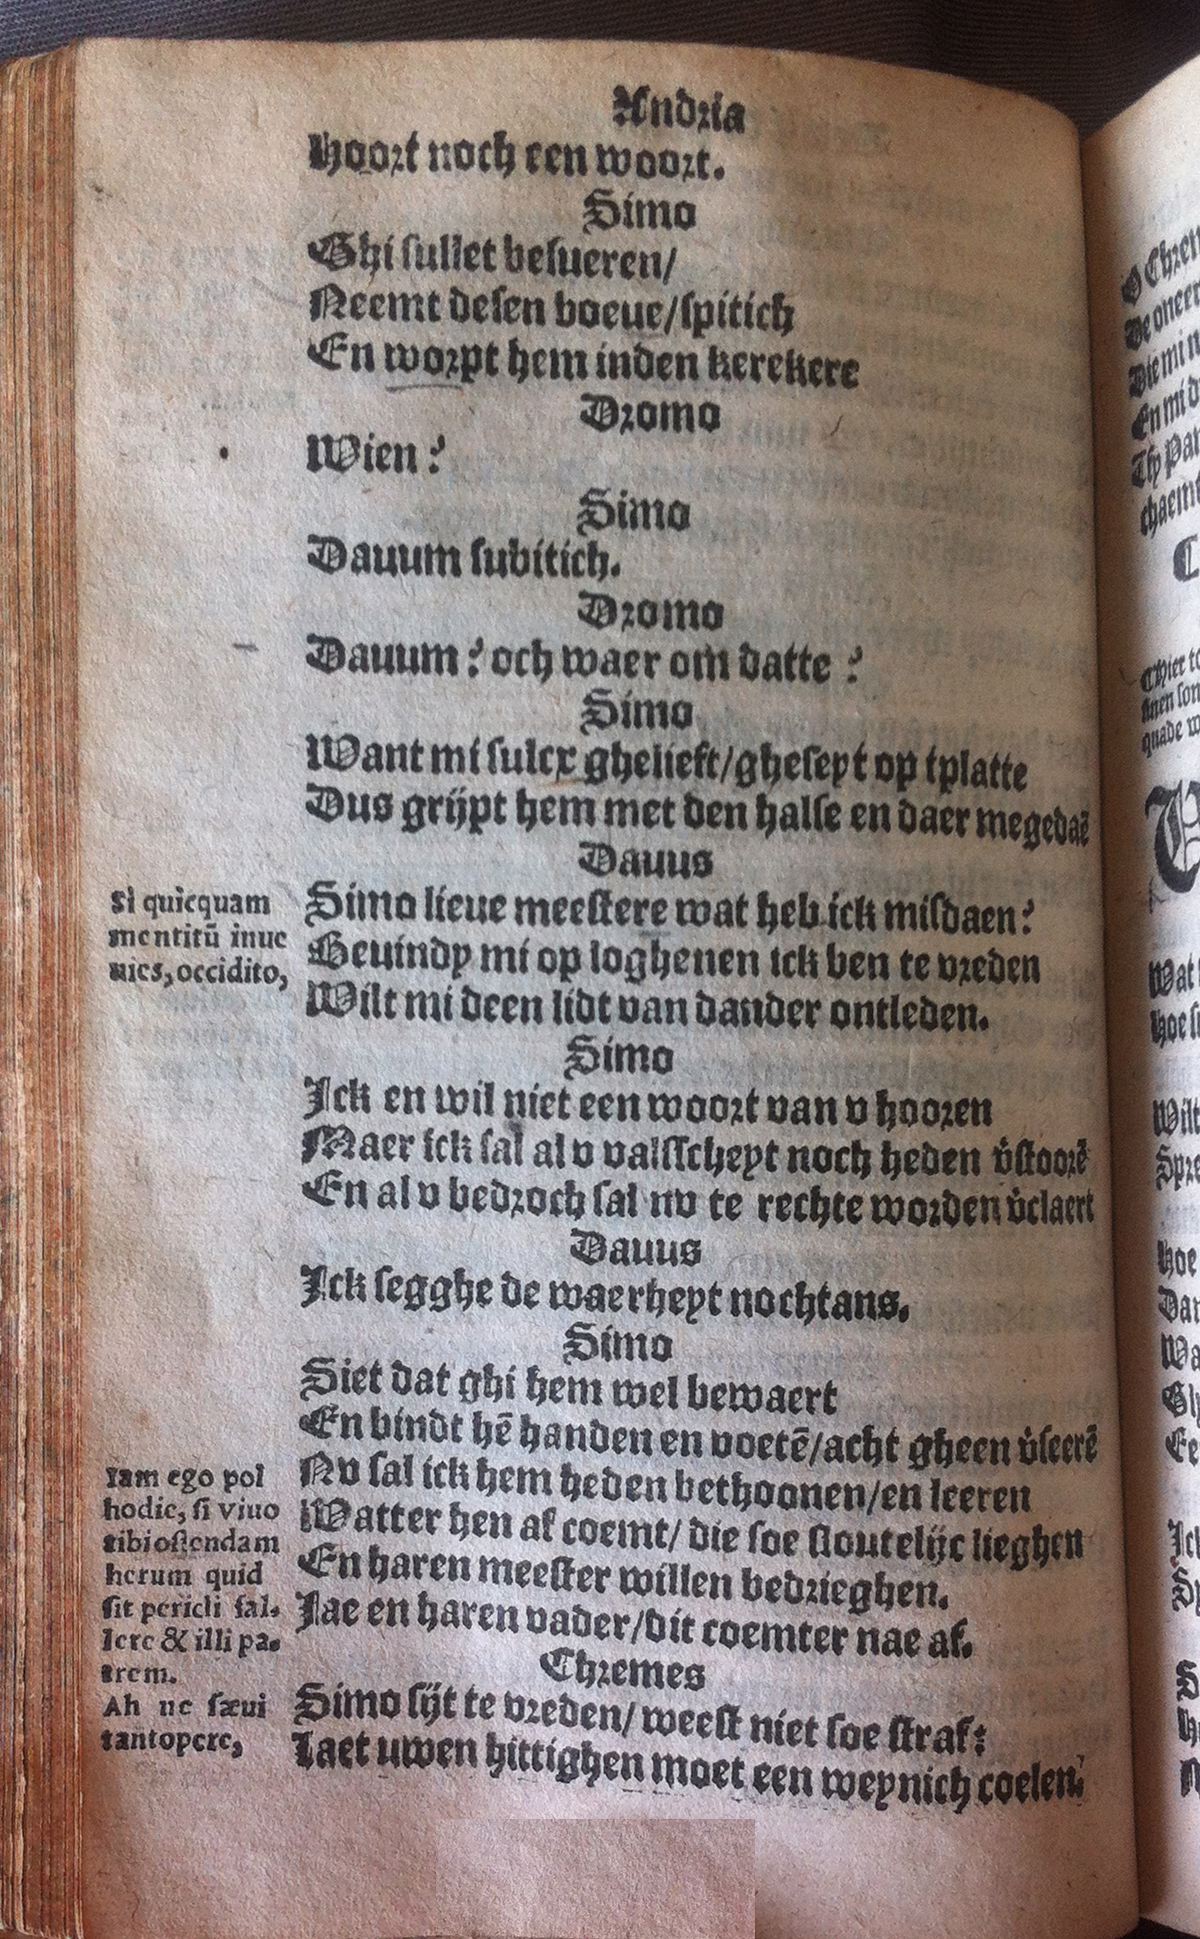 Andria
Hoort noch een woort.
Simo
Ghi sullet besueren/
Neemt desen boeue/spitich
En worpt hem inden kerckere
Dromo
Wien?
Simo
Dauum subitich.
Dromo
Dauum? och waer om datte?
Simo
Want mi sulcx ghelieft/gheseyt op tplatte
Dus grijpt hem met den halse en daer megedaẽ
Dauus
Simo lieue meestere wat heb ick misdaen?
Beuindy mi op loghenen ick ben te vreden
Wilt mi deen lidt van dander ontleden.
Si quicquam
mentitũ inue
nies, occidito,
Simo
Ick en wil niet een woort van v hooren
Maer ick sal al v valsscheyt noch heden v̾stoorẽ
En al v bedroch sal nv te rechte worden v̾claert
Dauus
Ick segghe de waerheyt nochtans.
Simo
Siet dat ghi hem wel bewaert
En bindt hẽ handen en voetẽ/acht gheen v̾seerẽ
Nv sal ick hem heden bethoonen/en leeren
Watter hen af coemt/die soe stoutelijc lieghen
En haren meester willen bedrieghen.
Jae en haren vader/dit coemter nae af.
Iam ego pol
hodie, si viuo
tibi ostendam
herum quid
sit pericli fal-
lere & illi pa-
trem.
Chremes
Simo sijt te vreden/weest niet soe straf:
Laet uwen hittighen moet een weynich coelen.
Ah ne sæui
tantopere,
O Chrem
De oneer
Die mi
En mi d
Thy Pa
chaemt
C
Chier to
sinen son
quade w
Wat
Hoe s
Wilt
Spre
Hoe
Dat
Wa
Ee
Ick